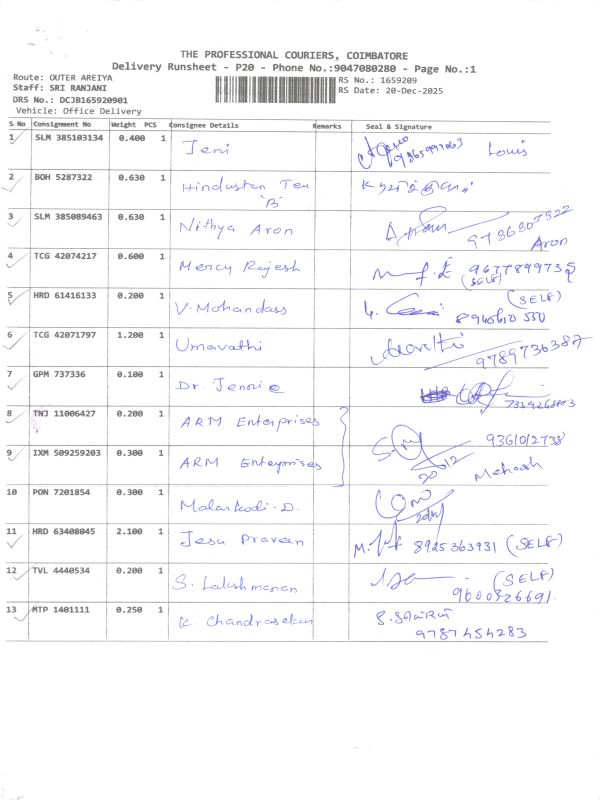 THE PROFESSIONAL COURIERS, COIMBATORE
Delivery Runsheet - P20 - Phone No.:9047080280 - Page No.:1
Route: OUTER AREIYA
Staff: SRI RANJANI
DRS No.: DCJB165920901
Vehicle: Office Delivery
RS No.: 1659209
RS Date: 20-Dec-2025
S No Consignment No Weight PCS Consignee Details Remarks Seal & Signature
1 SLM 385103134 0.400 1 Jeni Louis
2 BOH 5287322 0.630 1 Hindustan Tea 'B'
3 SLM 385089463 0.630 1 Nithya Aron 9786807322 Aron
4 TCG 42074217 0.600 1 Mercy Rajesh (SELF)
5 HRD 61416133 0.200 1 V. Mohandass (SELF)
6 TCG 42071797 1.200 1 Umavathi 9789736387
7 GPM 737336 0.100 1 Dr. Jennie
8 TNJ 11006427 0.200 1 ARM Enterprises
9 IXM 509259203 0.300 1 ARM Enterprises 20/12
10 PON 7201854 0.300 1 Malarkodi - D.
11 HRD 63408045 2.100 1 Jesu Praveen 8925363931 (SELF)
12 TVL 4440534 0.200 1 S. Lakshmanan (SELF) 9600326691
13 MTP 1401111 0.250 1 K. Chandrasekar 9787454283